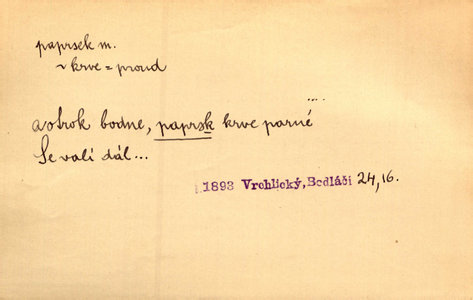 paprsek m.
~ krve = proud
a otrok bodne, paprsk krve parné ....
se valí dál...
1893 Vrchlický, Bodláčí 24,16.